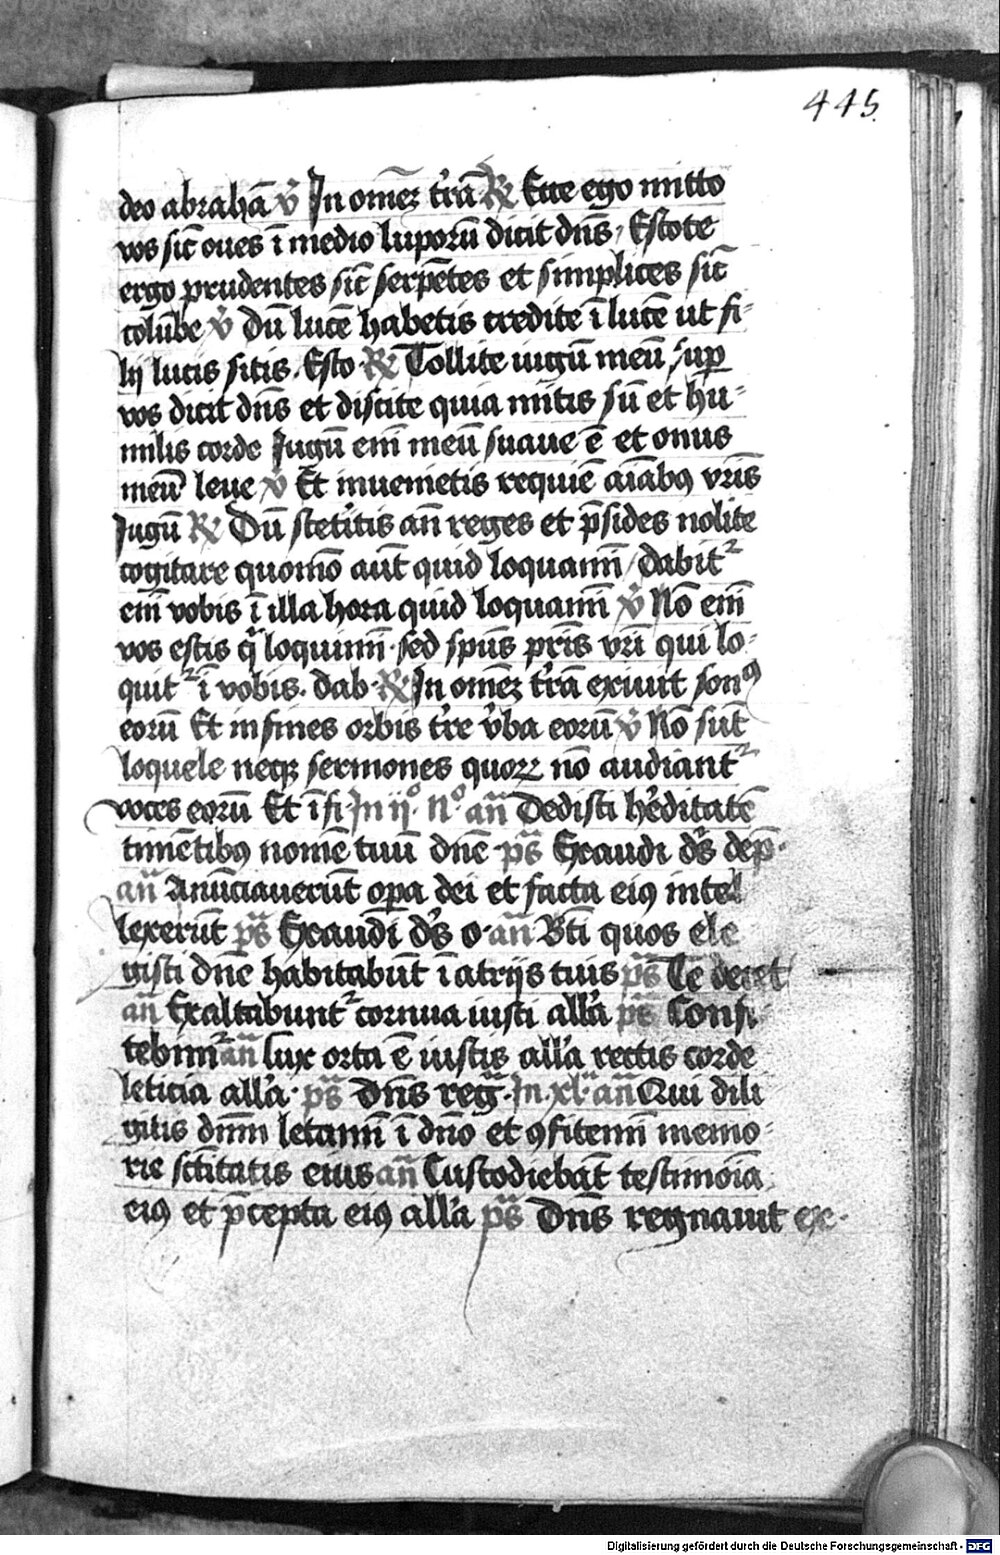 445.
deo abrahā v̉ In omēꝫ t̉rā ℞ Ecce ego mitto
vos sic̄ oues ī medio luporū dicit dn̄s / Estote
ergo prudentes sic̄ serpētes et simplices sic̄
colūbe v̉ Dū lucē habetis credite ī lucē ut fi-
lij lucis sitis. Esto ℞ Tollite iugū meū sup̱
vos dicit dn̄s et discite quia mitis sū et hu-
milis corde Jugū em̄ meū suaue ē et onus
meū leue v̉ Et inuenietis requiē aīabꝫ vr̄is
Jugū ℞ Dū stet̉itis an̄ reges et p̄sides nolite
cogitare quomō aut̄ quid loquami / dabit᷑
em̄ vobis ī illa hora quid loquami v̉ Nō em̄
vos estis q̄ loquimi · sed spūs pr̄is vr̄i qui lo-
quit᷑ ī vobis. dab ℞ In omēꝫ t̉rā exiuit sonꝰ
eorū Et in fines orbis t̉re v̉ba eorū v̉ Nō sūt
loquele neqꝫ sermones quoꝝ nō audiant᷑
voces eorū Et ī fi In ijº Nº an̄ Dedisti h̉editatē
timētibꝫ nomē tuū dn̄e ps̄ Exaudi ds̉ dep̄.
an̄ Anūciauerūt opa dei et facta eiꝰ intel
lexerūt ps̄ Exaudi ds̉ o · an̄ Bt̄i quos ele
gisti dn̄e habitabūt ī atrijs tuis ps̄ Te decet
an̄ Exaltabunt᷑ cornua iusti all̉a ps̄ Confi
tebim᷑ an̄ Lux orta ē iustis all̉a rectis corde
leticia all̉a · ps̄ Dn̄s reg̉. In xl᷑ an̄ Qui dili
gitis dn̄m letami ī dn̄o et ꝯfitemi memo-
rie sc̄titatis eius an̄ Custodiebāt testimoīa
eiꝰ et p̄cepta eiꝰ all̉a ps̄ Dn̄s regnauit ex-
Digitalisierung gefördert durch die Deutsche Forschungsgemeinschaft - DFG